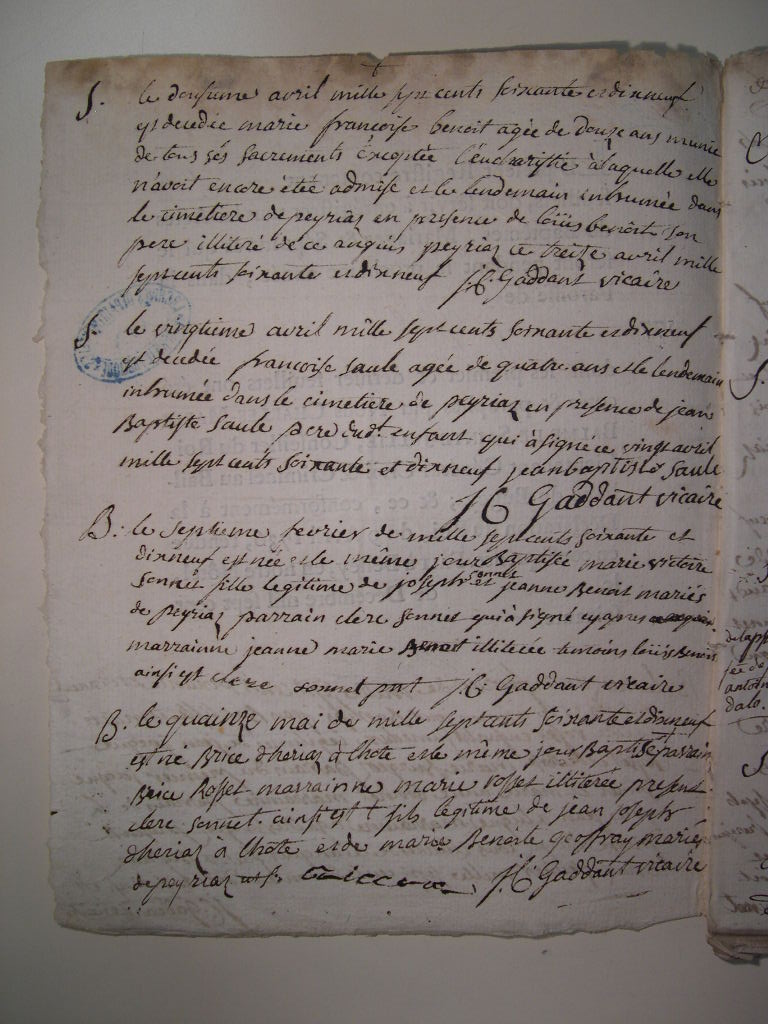 S. le dousieme avril mille sept cents soixante et dixneuf
est decedée marie francoise benoit agée de douze ans munie
de tous sés sacrements éxceptée l'eucharistie à laquelle elle
n'avoit encore étée admise et le lendemain inhumée dans
le cimetiere de peyriaz en presence de loüis benoit son
pere illiteré de ce anquis peyriaz ce treise avril mille
sept cents soixante et dixneuf JC Gaddant vicaire
S. le vingtieme avril mille sept cents soixante et dixneuf
est decedée francoise saule agée de quatre ans et le lendemain
inhumée dans le cimetiere de peyriaz en presence de jean
Baptiste saule pere dudt. enfant qui à signé ce vingt avril
mille sept cents soixante et dixneuf jean baptiste saule
JC Gaddant vicaire
B: le septieme fevrier de mille sept cents soixante et
dixneuf est née et le même jour Baptisée marie victoire
sonnet fille legitime de joseph sonnet et jeanne Benoit mariés
de peyriaz parrain clere sonnet qui à signé
marrainne jeanne marie illiterée temoins loüis Benoit
ainsi est clere sonnet pnt JC Gaddant vicaire
B. le quainze mai de mille sept cents soixante et dixneuf
est né Brice dheriaz à lhote et le même jour Baptisé parrain
Brice Rosset marrainne marie rosset illiterée present
clere sonnet. ainsi est fils legitime de jean joseph
dheriaz à lhote et de marie Benoite Geoffray mariés
de peyriaz JC Gaddant vicaire